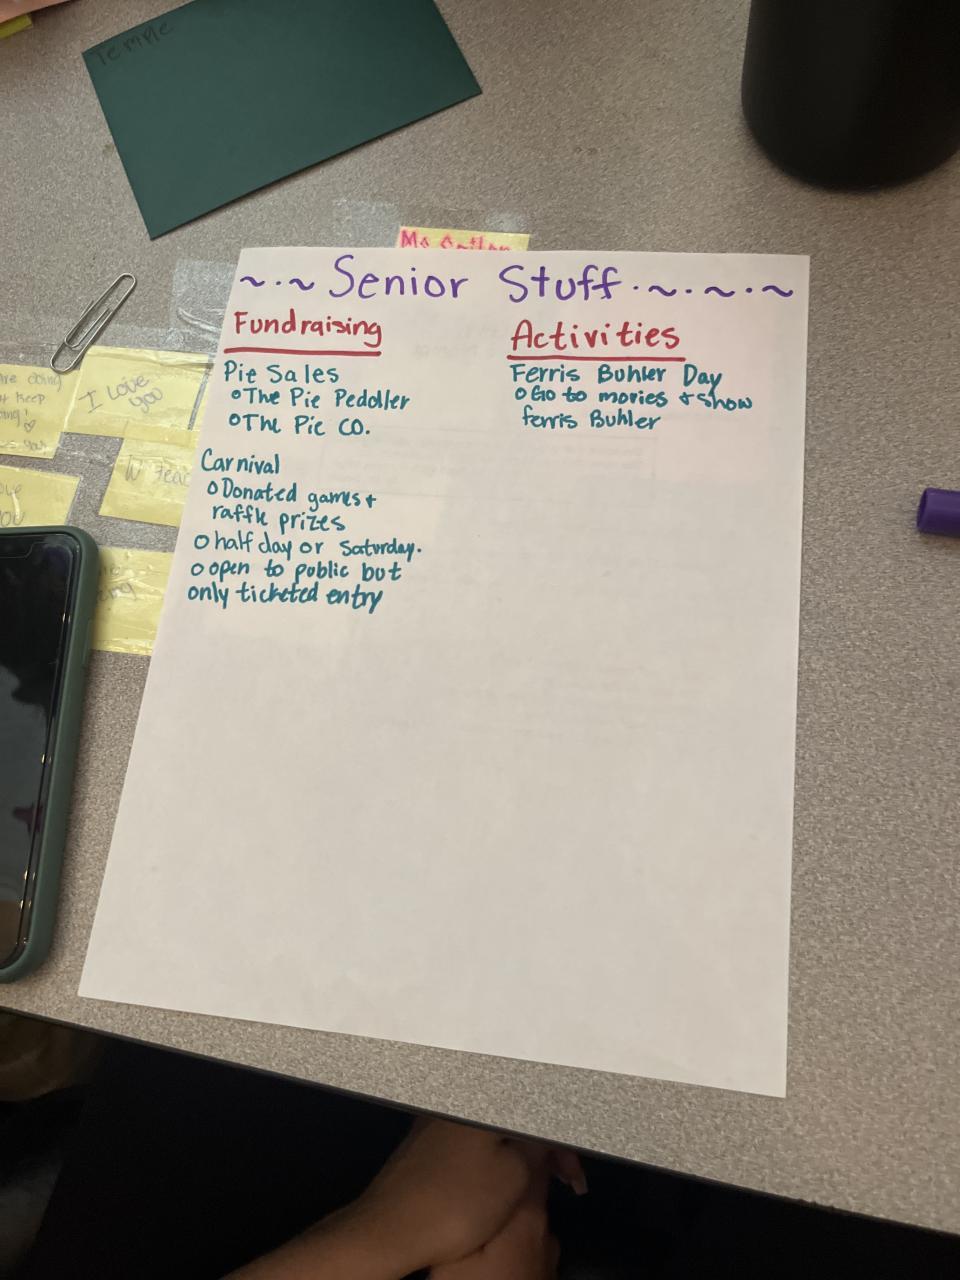 Temple
~·~ Senior Stuff·~·~·~
Fundraising
Pie Sales
o The Pie Peddler
o The Pie CO.
Carnival
o Donated games +
raffle prizes
o half day or Saturday.
o open to public but
only ticketed entry
Activities
Ferris Buhler Day
o Go to movies + show
ferris Buhler
I love
you